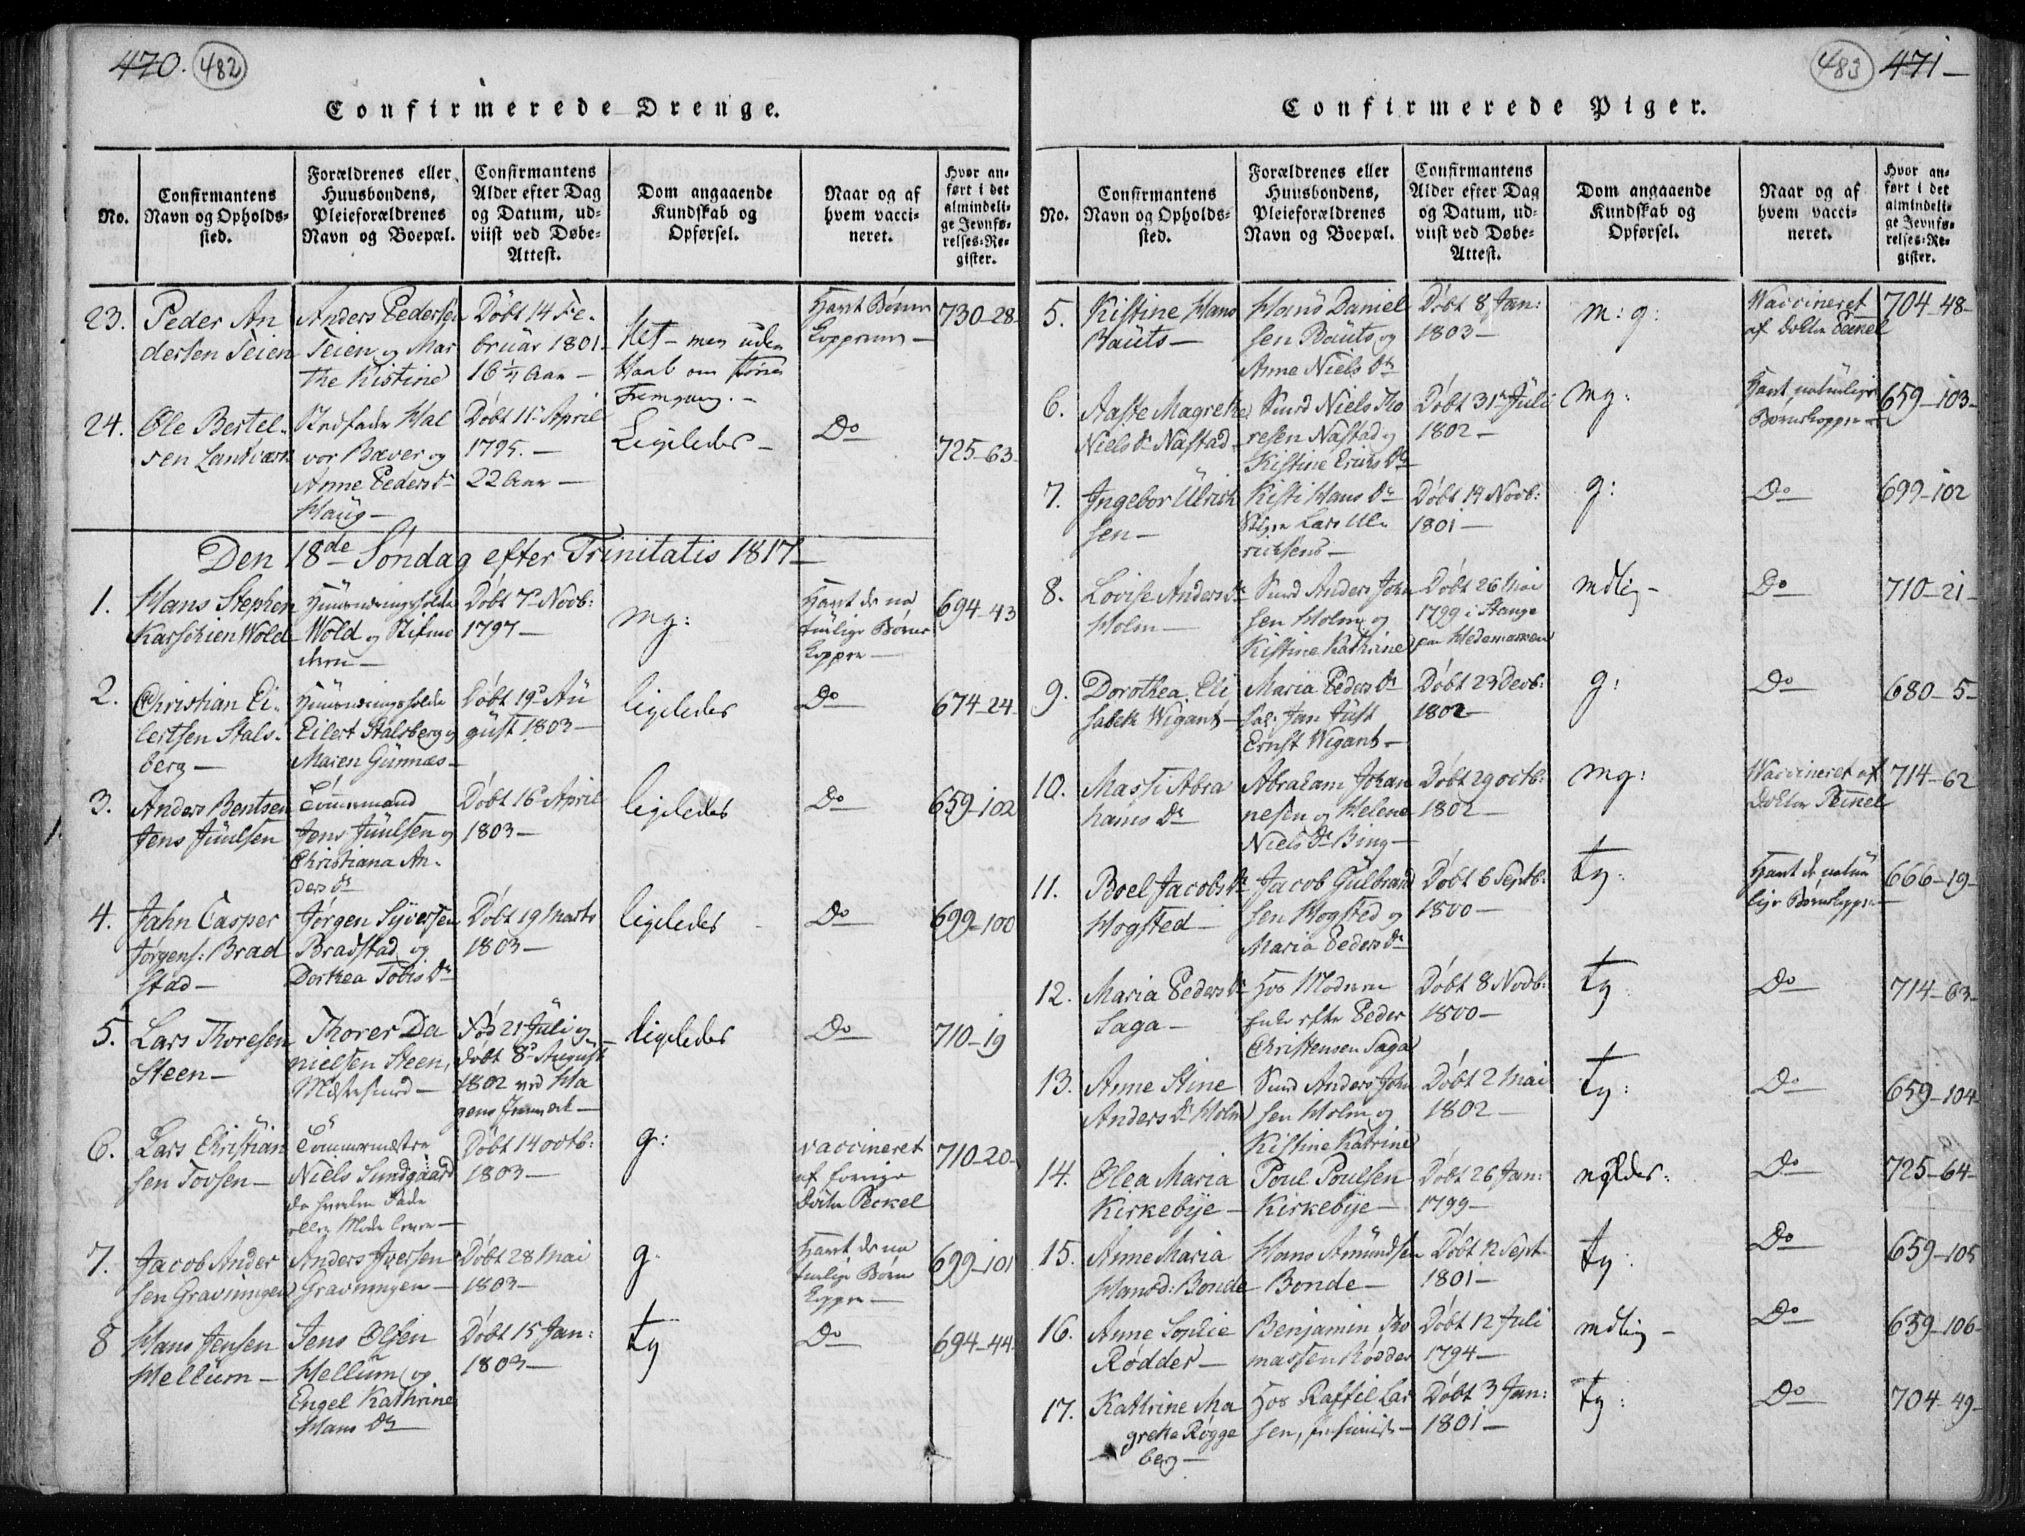 470. 482
Confirmerede Drenge.
No.
Confirmantens
Navn og Opholds-
sted.
Forældrenes eller
Huusbondens,
Pleieforældrenes
Navn og Boepæl.
Confirmantens
Alder efter Dag
og Datum, ud-
viist ved Døbe-
Attest.
Dom angaaende
Kundskab og
Opførsel.
Naar og af
hvem vacci-
neret.
Hvor an-
ført i det
almindeli-
ge Jevnfø-
relses-Re-
gister.
23.
Peder An
dersen Seien
Anders Pedersen
Seien og Mar
the Kistine
Døbt 14 Fe-
bruar 1801
16 Aar
Ret - men uden
Haab om større
Fremgang.
Havt Børne
Kopperne
730-28-
24.
Ole Bertel-
sen Landværk
Stedfader Hal
vor Bæver og
Anne Peders Dr
Haug
Døbt 11 April
1795.
22 Aar
Ligeledes
Do
725-63-
Den 18de Søndag efter Trinitatis 1817
1.
Hans Stephen
Karschien Wold
Wold og Stifmo
deren
Døbt 7 Novb:
1797
mg:
Havt de na
turlige Børne
Kopper
694-43
2.
Christian Ei-
lertsen Stals-
berg
Eilert Stalsberg og
Maren Gunnæs
Døbt 19 Au
gust 1803
ligeledes
Do
674-24-
3.
Anders Bentsen
Jens Juulsen
Tømmermand
Jens Juulsen og
Christiana An-
ders Dr
Døbt 16 April
1803
ligeledes
Do
659-102
4.
Jahn Casper
Jørgens: Brad
stad
Jørgen Syversen
Bradstad og
Dorthea Tobis Dr
Døbt 19 Marts
1803
ligeledes
Do
699-100
5.
Lars Thoresen
Steen
Thorer Da
nielsen Steen,
Født 21 Juli og
døbt 8 August
1802 ved Ha
ligeledes
Do
710-19
6.
Lars Christian
sen Tovsen
Tømmermester
Niels Sundgaard
da hverken Fader
eller Moder lever
Døbt 14 octb:
1803
g:
vaccineret
af forrige
Doctor Peckel
710-20-
7.
Jacob Ander
sen Gravningen
Anders Iversen
Gravningen
Døbt 28 Mai
1803
g
Havt de na
turlige Børne
Kopper
699-101
8
Hans Jensen
Mellum
Jens Olsen
Mellum og
Engel Kathrine
Hans Dr
Døbt 15 Jan:
1803
tg
Do
694-44-
483 471
Confirmerede Piger.
No.
Confirmantens
Navn og Opholds-
sted.
Forældrenes eller
Huusbondens,
Pleieforældrenes
Navn og Boepæl.
Confirmantens
Alder efter Dag
og Datum, ud-
viist ved Døbe-
Attest.
Dom angaaende
Kundskab og
Opførsel.
Naar og af
hvem vacci-
neret.
Hvor an-
ført i det
almindeli-
ge Jevnfø-
relses-Re-
gister.
5.
Kistine Hans
Bauts
Hans Daniel
sen Bauts og
Anne Niels Dr
Døbt 8 Jan:
1803
m: g:
Vaccineret
af Doktor
704-48-
6.
Aaste Magrethe
Niels Dr Nastad
Smed Niels Tho
resen Nastad og
Kistine Eriks Dr
Døbt 31 Juli
1802
mg:
Havt naturlige
Børnekopper
659-103-
7.
Ingebor Ulrich
sen
Kisti Hans Dr
Lars Ul-
richsens
Døbt 14 Novb:
1801
g:
Do
699-102
8.
Lovise Anders Dr
Holm
Smed Anders John
sen Holm og
Kistine Kathrine
Døbt 26 Mai
1799 i Stange
paa Hedemarken
mdlig
Do
710-21-
9.
Dorothea Eli
sabeth Wigant
Maria Peders Dr
Sal: Jan Just
Ernst Wigant
Døbt 23 Decb:
1802
g:
Do
680-5-
10.
Massi Abra
hams Dr
Abraham Johan
nesen og Helene
Niels Dr Bing
Døbt 29 octb:
1802
mg:
Vaccineret af
Doktor
714-62
11.
Boel Jacobs Dr
Hogsted
Jacob Gulbrand
sen Hogsted og
Maria Peders Dr
Døbt 6 Septb:
1800
tg:
Havt de natur
lige Børnekopper
666-19-
12.
Maria Peders Dr
Saga
Hos Moderen
Enke efter Peder
Christensen Saga
Døbt 8 Novb:
1800
tg:
Do
714-63-
13.
Anne Stine
Anders Dr Holm
Smed Anders John
sen Holm og
Kistine Katrine
Døbt 2 Mai
1802
tg:
Do
659-104-
14.
Olea Maria
Kirkebye
Poul Poulsen
Kirkebye
Døbt 26 Jan:
1799
Do
725-64-
15.
Anne Maria
Hansd: Bonde
Hans Amundsen
Bonde
Døbt 12 Sept
1801
tg:
Do
659-105
16.
Anne Sophie
Rødder
Benjamin Tho
massen Rødder
Døbt 12 Juli
1794
mdlig
Do
659-106-
17.
Kathrine Ma
grethe Rogge
berg
Hos Raffil Lar
sen,
Døbt 3 Jan:
1801
tg:
Do
704-49-